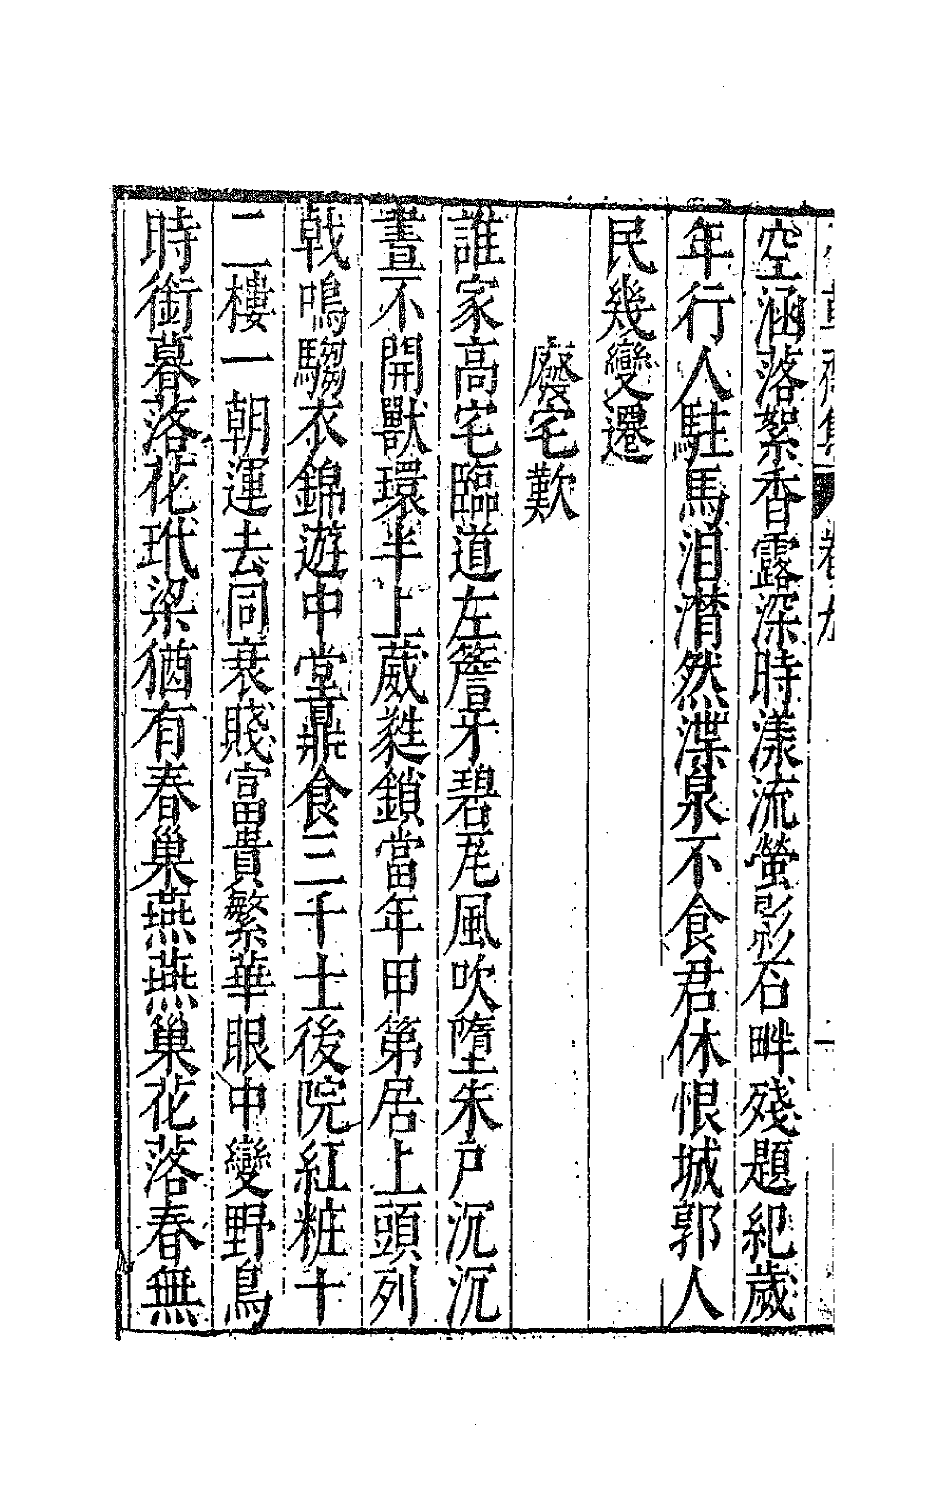 空涵落絮香露深時漾流螢影石畔殘題紀歲
年行人駐馬淚潸然渫泉不食君休恨城郭人
民幾變遷
廢宅歎
誰家高宅臨道左簷牙碧瓦風吹墮朱戶沉沉
晝不開獸環半上葳蕤鎖當年甲第居上頭列
戟鳴騶衣錦遊中堂鼎食三千士後院紅粧十
二樓一朝運去同衰賤富貴繁華眼中變野鳥
時銜暮落花玳梁猶有春巢燕燕巢花落春無